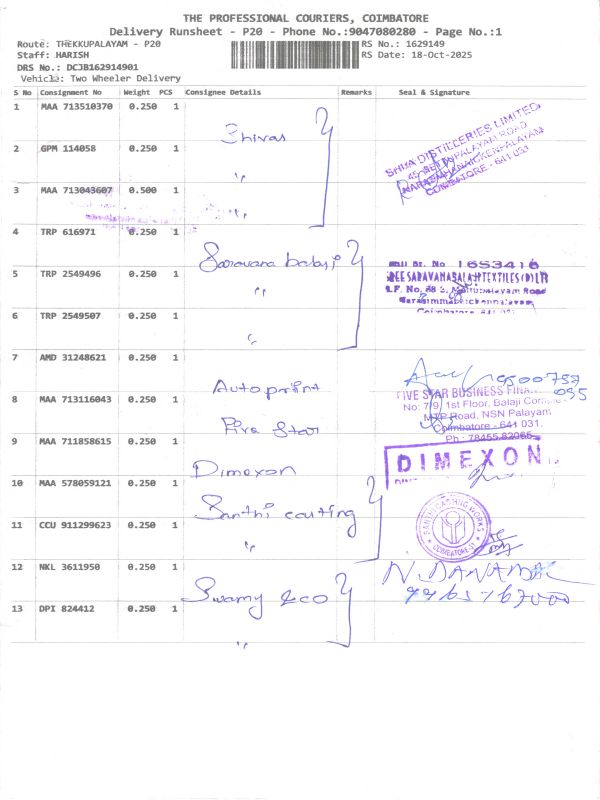 THE PROFESSIONAL COURIERS, COIMBATORE
Delivery Runsheet - P20 - Phone No.:9047080280 - Page No.:1
Route: THEKKUPALAYAM - P20 RS No.: 1629149
Staff: HARISH RS Date: 18-Oct-2025
DRS No.: DCJB162914901
Vehicle: Two Wheeler Delivery
S No Consignment No Weight PCS Consignee Details Remarks Seal & Signature
1 MAA 713510370 0.250 1 Shivas
SHIVA DISTILLERIES LIMITED
COIMBATORE - 641 031
2 GPM 114058 0.250 1 "
3 MAA 713043607 0.500 1 "
4 TRP 616971 0.250 1 Saravana balaji
1653416
5 TRP 2549496 0.250 1 "
6 TRP 2549507 0.250 1 "
7 AMD 31248621 0.250 1 Autoprint
8 MAA 713116043 0.250 1 Five Star
FIVE STAR BUSINESS FINA
No: 7/9, 1st Floor, Balaji Comple
MTP Road, NSN Palayam
Coimbatore - 641 031.
Ph : 78455 82065
9 MAA 711858615 0.250 1 Dimexon
DIMEXON
10 MAA 578059121 0.250 1 Santhi casting
SANTHI CASTING WORKS
COIMBATORE-31
11 CCU 911299623 0.250 1 "
12 NKL 3611950 0.250 1 Swamy & co
13 DPI 824412 0.250 1 "